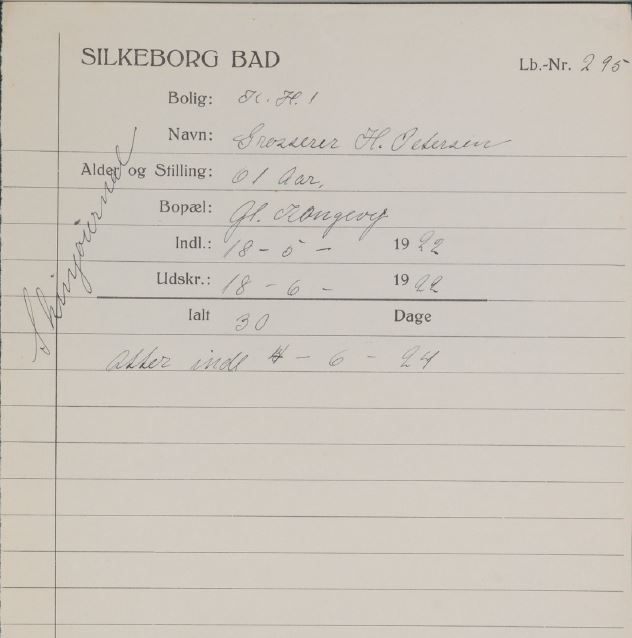 SILKEBORG BAD
Lb.-Nr. 295
Bolig: K. H. 1
Navn: Grosserer H. Petersen
Alder og Stilling: 61 Aar,
Bopæl: Gl. Kongevej
Indl.: 18 - 5 - 1922
Udskr.: 18 - 6 - 1922
Ialt 30 Dage
atter indl 4 - 6 - 24